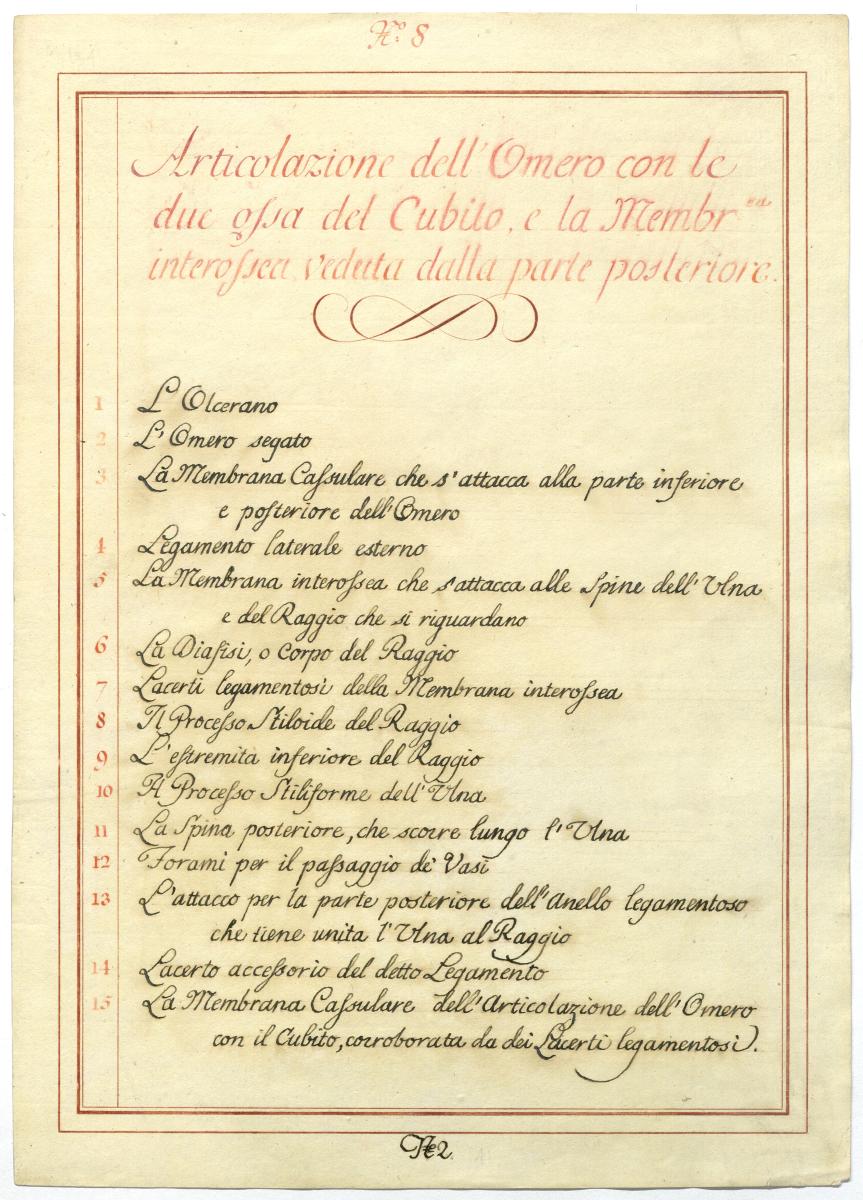 N.º 8
Articolazione dell'Omero con le
due ossa del Cubito, e la Membr.na
interossea, veduta dalla parte posteriore.
1 L'Olcerano
2 L'Omero segato
3 La Membrana Cassulare che s'attacca alla parte inferiore
e posteriore dell'Omero
4 Legamento laterale esterno
5 La Membrana interossea che s'attacca alle Spine dell'Ulna
e del Raggio che si riguardano
6 La Diafisi, o Corpo del Raggio
7 Lacerti legamentosi della Membrana interossea
8 Il Processo Stiloide del Raggio
9 L'estremita inferiore del Raggio
10 Il Processo Stiliforme dell'Ulna
11 La Spina posteriore, che scorre lungo l'Ulna
12 Forami per il passaggio de' Vasi
13 L'attacco per la parte posteriore dell'Anello legamentoso
che tiene unita l'Ulna al Raggio
14 Lacerto accessorio del detto Legamento
15 La Membrana Cassulare dell'Articolazione dell'Omero
con il Cubito, corroborata da dei Lacerti legamentosi.